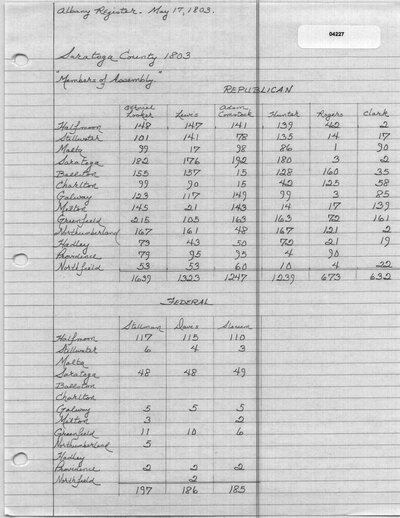 Albany Register. May 17, 1803.
04227
Saratoga County 1803
"Members of Assembly."
REPUBLICAN
Othniel Looker Lewis Adam Comstock Hunter Rogers Clark
Halfmoon 148 147 141 139 62 2
Stillwater 101 141 78 135 14 17
Malta 99 17 98 86 1 90
Saratoga 182 176 192 180 3 2
Ballston 155 157 15 128 160 35
Charlton 99 90 15 42 125 58
Galway 123 117 149 99 3 85
Milton 145 21 143 14 17 139
Greenfield 215 105 163 163 72 161
Northumberland 167 161 48 167 121 2
Hadley 73 43 50 72 21 19
Providence 79 95 95 4 90
Northfield 53 53 60 10 4 22
1639 1323 1247 1239 673 632
FEDERAL
Stillman Davis
Halfmoon 117 115 110
Stillwater 6 4 3
Malta
Saratoga 48 48 49
Ballston
Charlton
Galway 5 5 5
Milton 3 2
Greenfield 11 10 6
Northumberland 5
Hadley
Providence 2 2 2
Northfield 2
197 186 185